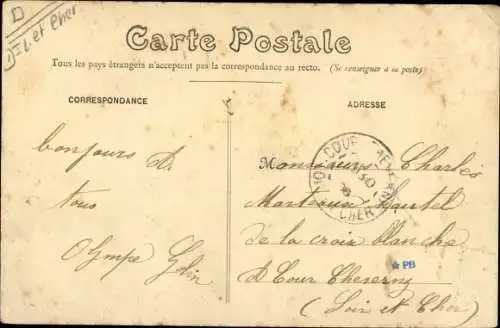 D
L et Cher
Carte Postale
Tous les pays étrangers n'acceptent pas la correspondance au recto. (Se renseigner à la poste)
CORRESPONDANCE
ADRESSE
bonjours A
tous
Olympe
Monsieur Charles
Marteaux
de la croix blanche
A Cour Cheverny
(Loir et Cher)
COUR
CHER
PB